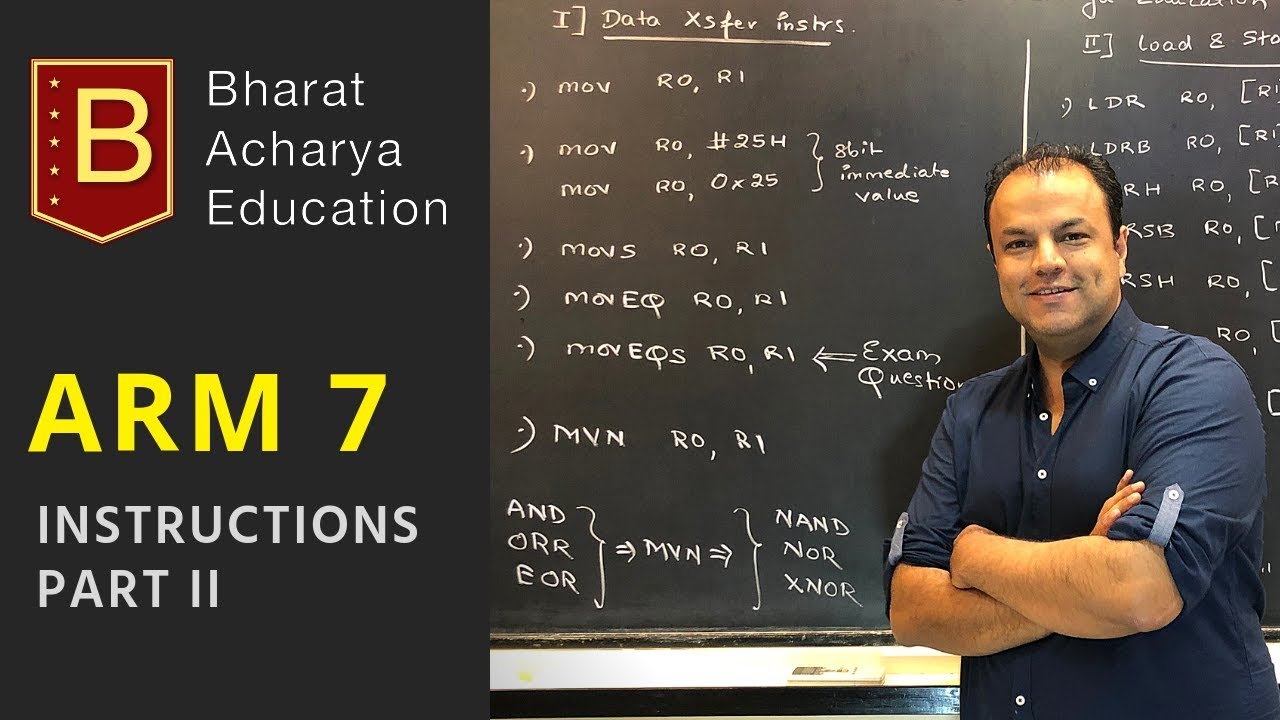 B
Bharat
Acharya
Education
ARM 7
INSTRUCTIONS
PART II
I] Data Xsfer instrs.
·) MOV R0, R1
·) MOV R0, #25H
MOV R0, 0x25
8bit
immediate
value
·) MOVS R0, R1
·) MOVEQ R0, R1
·) MOVEQS R0, R1 ⇐ Exam
Question
·) MVN R0, R1
AND
ORR
EOR
⇒ MVN ⇒
NAND
NOR
XNOR
Education
II] Load &
·) LDR R0, [R1
LDRB R0, [R1
RH R0, [R
RSB R0, [
RSH R0, [
R0, [